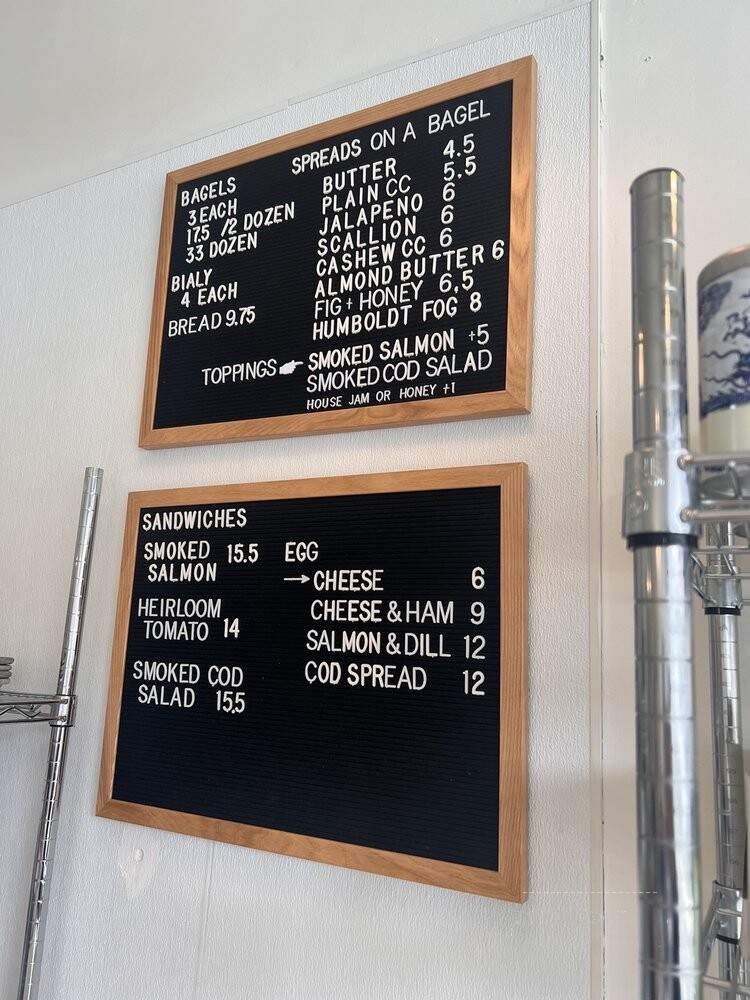 BAGELS
3 EACH
17.5 /2 DOZEN
33 DOZEN
BIALY
4 EACH
BREAD 9.75
SPREADS ON A BAGEL
BUTTER 4.5
PLAIN CC 5.5
JALAPENO 6
SCALLION 6
CASHEW CC 6
ALMOND BUTTER 6
FIG + HONEY 6.5
HUMBOLDT FOG 8
TOPPINGS SMOKED SALMON +5
SMOKED COD SALAD
HOUSE JAM OR HONEY +1
SANDWICHES
SMOKED 15.5
SALMON
HEIRLOOM
TOMATO 14
SMOKED COD
SALAD 15.5
EGG
→ CHEESE 6
CHEESE & HAM 9
SALMON & DILL 12
COD SPREAD 12